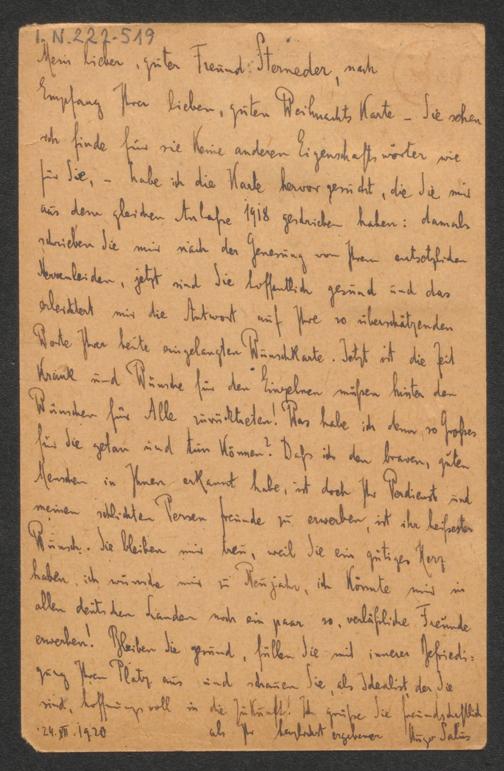 I. N. 222.519
Mein lieber, guter Freund Sterneder, nach
Empfang Ihrer lieben, guten Weihnachts Karte – Sie sehen
ich finde für sie keine anderen Eigenschaftswörter wie
für Sie, – habe ich die Karte hervor gesucht, die Sie mir
aus dem gleichen Anlaße 1918 geschrieben haben: damals
schrieben Sie mir nach der Genesung von Ihrem entsetzlichen
Nervenleiden, jetzt sind Sie hoffentlich gesund und das
erleichtert mir die Antwort auf Ihre so überschätzenden
Worte Ihrer heute eingelangten Wunschkarte. Jetzt ist die Zeit
krank und Wünsche für den Einzelnen müßen hinter den
Wünschen für Alle zurücktreten! Was habe ich denn so Großes
für Sie getan und tun können? Daß ich den braven, guten
Menschen in Ihnen erkannt habe, ist doch Ihr Verdienst und
meinen schlichten Versen Freunde zu erwerben, ist ihr heißester
Wunsch. Sie bleiben mir treu, weil Sie ein gütiges Herz
haben. ich wünsche mir zu Neujahr, ich könnte mir in
allen deutschen Landen noch ein paar so verläßliche Freunde
erwerben! Bleiben Sie gesund, füllen Sie mit innerer Befriedi-
gung Ihren Platz aus und schauen Sie, als Idealist der Sie
sind, hoffnungsvoll in die Zukunft! Ich grüße Sie freundschaftlich
24. XII. 1920 als Ihr herzlichst ergebener Hugo Salus